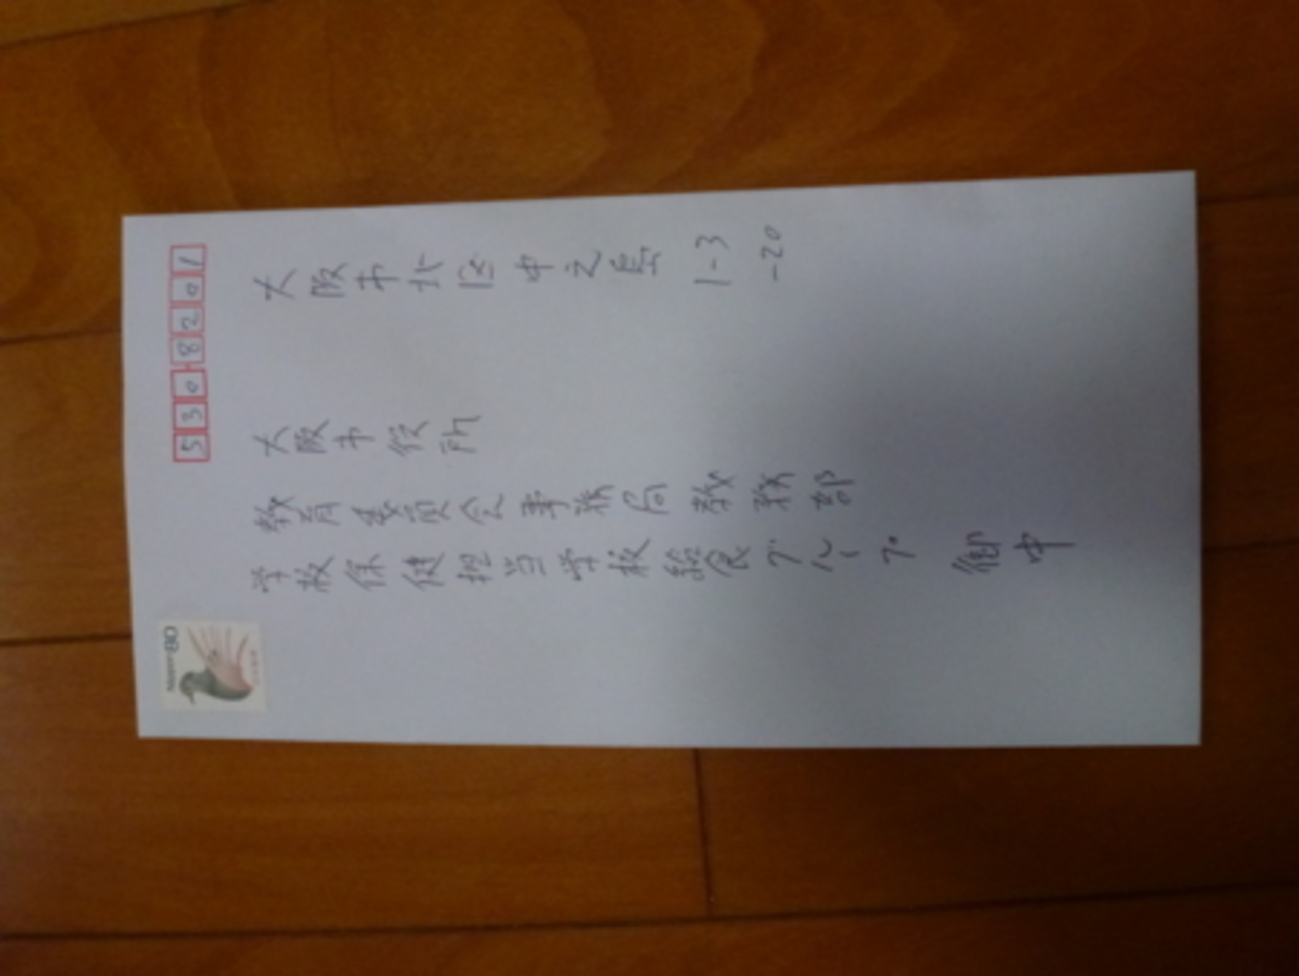 5308201
大阪市北区中之島1-3-20
大阪市役所
教育委員会事務局教務部
学校保健担当学校給食グループ 御中
80
NIPPON